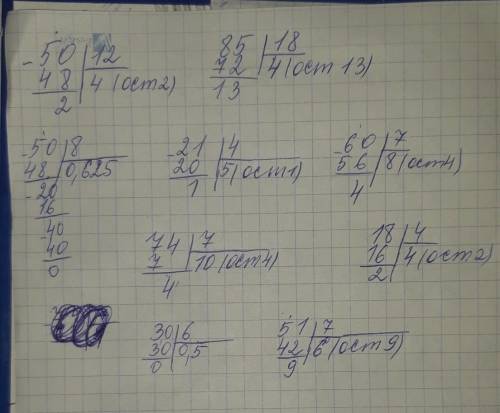 -50 | 12
48 | 4 (ост 2)
2
85 | 18
72 | 4 (ост 13)
13
-50 | 8
48 | 0,625
-20
16
-40
40
0
-21 | 4
20 | 5 (ост 1)
1
-60 | 7
56 | 8 (ост 4)
4
74 | 7
7 | 10 (ост 4)
4
18 | 4
16 | 4 (ост 2)
2
30 | 6
30 | 0,5
0
51 | 7
42 | 6 (ост 9)
9